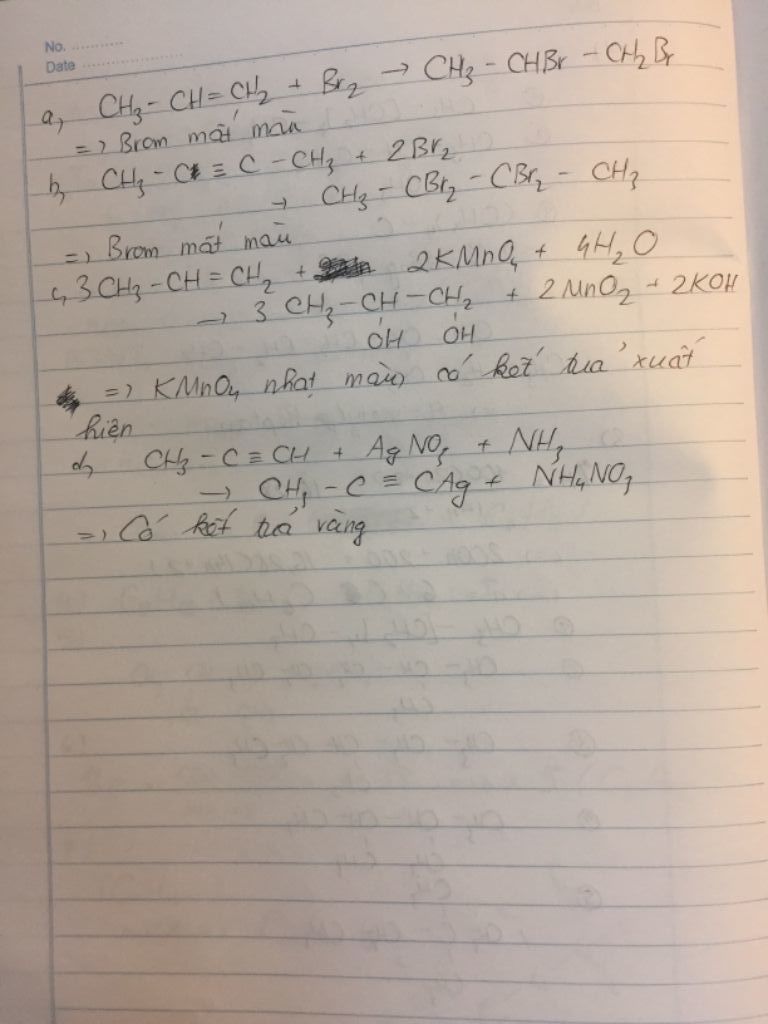 No. ............
Date ........................
a, CH3 - CH = CH2 + Br2 → CH3 - CHBr - CH2Br
=> Brom mất màu
b, CH3 - C ≡ C - CH3 + 2Br2
→ CH3 - CBr2 - CBr2 - CH3
=> Brom mất màu
c, 3CH3 - CH = CH2 + 2KMnO4 + 4H2O
→ 3 CH3 - CH - CH2 + 2MnO2 + 2KOH
OH OH
=> KMnO4 nhạt màu, có kết tủa xuất
hiện
d, CH3 - C ≡ CH + AgNO3 + NH3
→ CH3 - C ≡ CAg + NH4NO3
=> Có kết tủa vàng